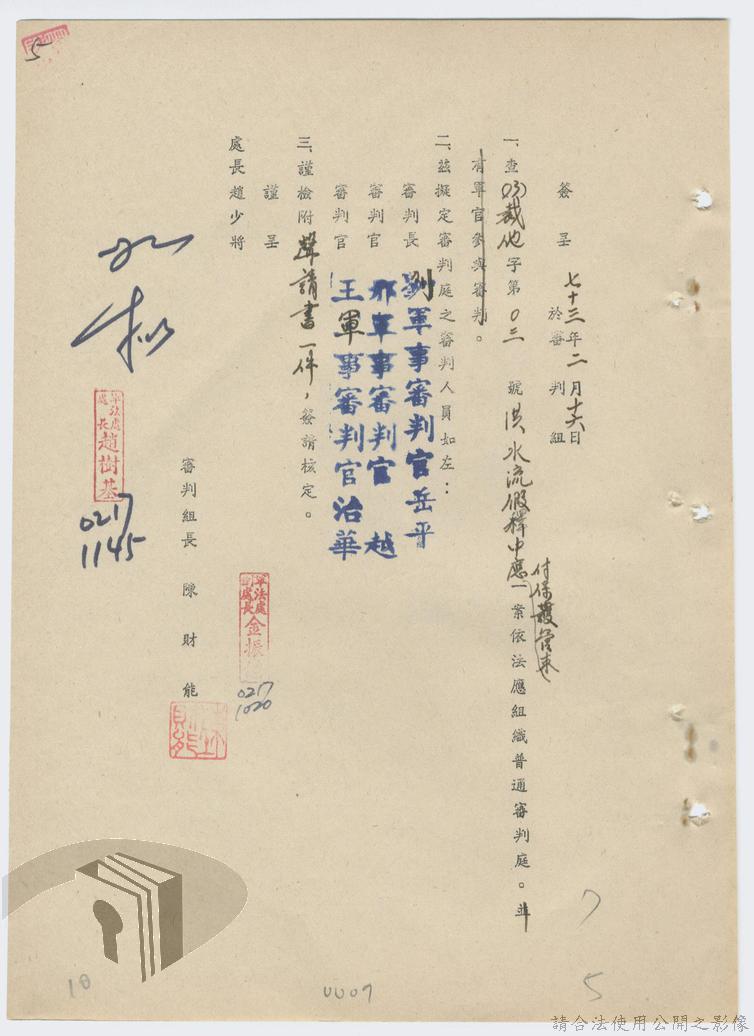 簽呈 七十三年二月十六日
於審判組
一、查(73)裁他字第〇三號洪水流假釋中應付保護管束一案依法應組織普通審判庭。並
有軍官參與審判。
二、茲擬定審判庭之審判人員如左：
審判長 劉軍事審判官岳平
審判官 邢軍事審判官 越
審判官 王軍事審判官治華
三、謹檢附聲請書一件，簽請核定。
謹呈
處長趙少將
審判組長 陳財能
軍法處副處長金振
0217
1020
如擬
軍法處處長趙樹基
0217
1145
5
7
5
10
0007
請合法使用公開之影像